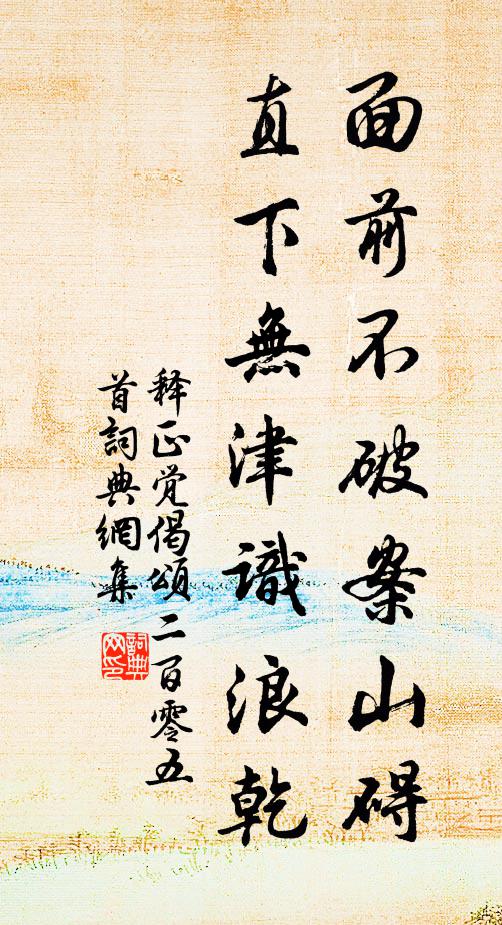 面前不破案山碍
直下無津識浪乾
释正觉偈頌二百零五
首詞典網集
詞典
网印